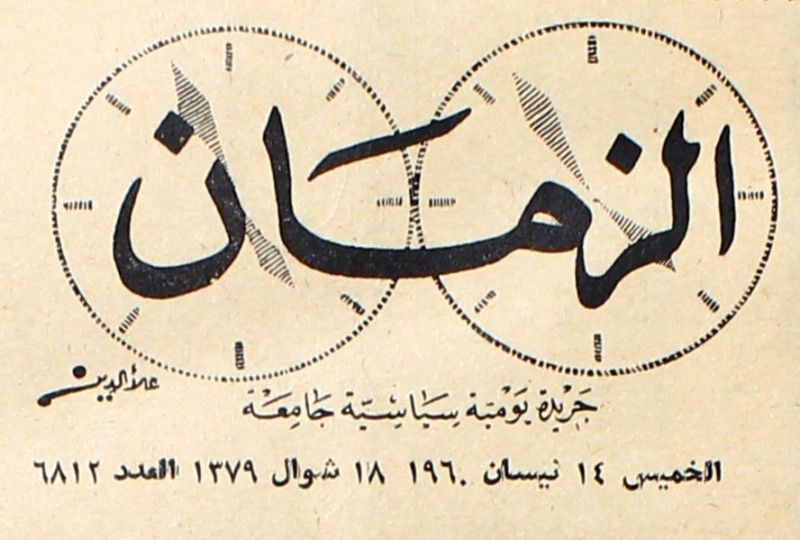 الزمان
علاءالدين
جَرْيدة يَوْميّة سِيَاسِيّة جَامِعَة
الخميس ١٤ نيسان ١٩٦٠ ١٨ شوال ١٣٧٩ العدد ٦٨١٢